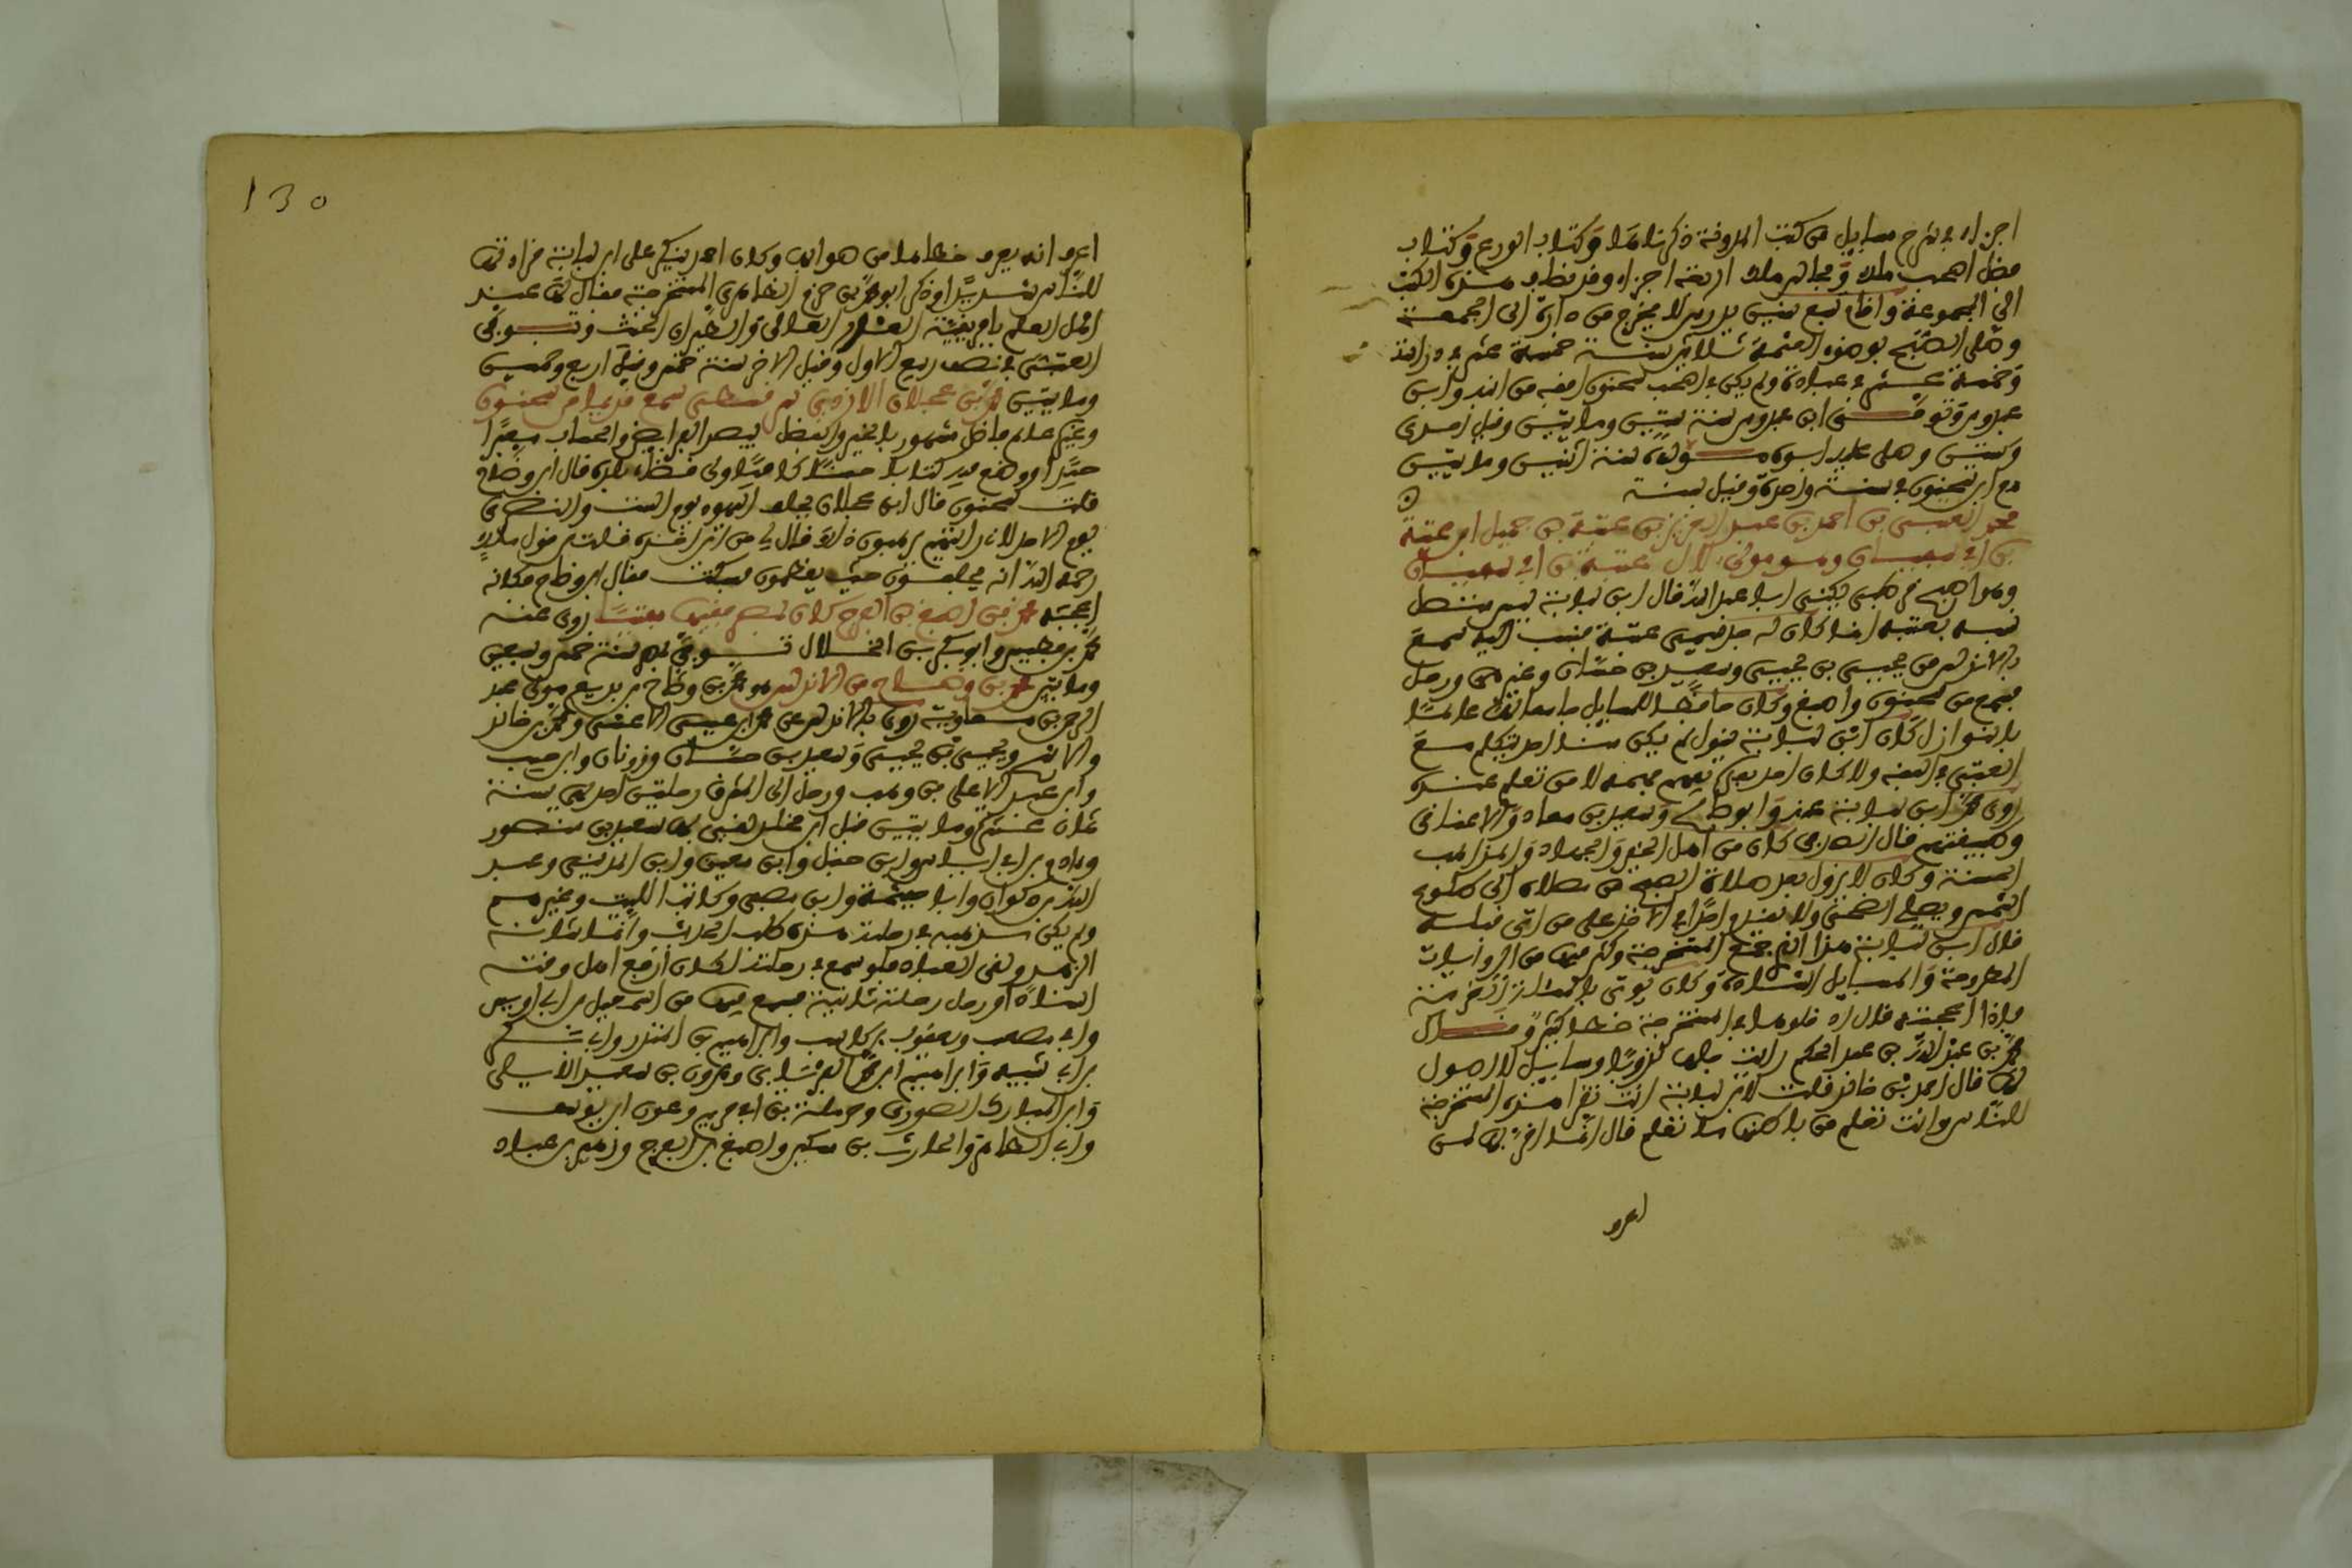 اجزاء في شرح مسايل من كتب المدونة ذكرناها وكتاب الورع وكتاب
فضل اصحب ملك ومجالس ملك اربعة اجزاء وقد نظاف هذه الكتب
الى المجموعة واقام سبع سنين يدرس لا يخرج من داره الى الجمعة
وصلى الصبح بوضوء العتمة ثلاثين سنة خمسة عشر في دراسة
وخمسة عشر في عبادة ولم يكن في اصحب سحنون افقه من ابن عبدوس
عبدوس وتوفى ابن عبدوس سنة ستين ومايتين وقيل احدى
وستين وصلى عليه اخوه مولده سنة اثنين ومايتين
مع ابن سحنون في سنة واحدة وقيل سنة
محمد العتبي بن احمد بن عبد العزيز بن عتبة بن جميل بن عتبة
بن ابي سفيان وهو مولى لآل عتبة بن ابي سفيان
وهو اصح قرطبي يكنى ابا عبد الله قال ابن لبابة ليس متصل
نسبه بعتبة انما كان له جد يسمى عتبة فنسب اليه سمع
بالاندلس من يحيى بن يحيى وسعيد بن حسان وغيرهم ورحل
فسمع من سحنون واصبغ وكان حافظا للمسايل جامعا لها عالما
بالنوازل كان ابن لبابة يقول لم يكن هنا احد يتكلم مع
العتبي في الفقه ولا كان احد بعده يفهم فهمه الا من تعلم عنده
روى محمد ابن لبابة عنه وابو صالح وسعيد بن معاذ والاعناقي
وطبقتهم قال الصدفي كان من اهل الخير والجهاد والمذاهب
الحسنة وكان لا يزول بعد صلاة الصبح من مصلاه الى طلوع
الشمس ويصلي الضحى ولا يقدم احدا في الاخذ على من اتى قبله
قال ابن لبابة هذا الذي جمع المستخرجة وكثر فيها من الروايات
المطروحة والمسايل الشاذة وكان يوتى بالمسالة الغريبة
فاذا اعجبته قال ادخلوها في المستخرجة خطا كثير وقال
محمد بن عبد الله بن عبد الحكم رايت جلها كذوبا ومسايل لا اصول
لها قال احمد بن خالد قلت لابن لبابة انت تقرا هذه المستخرجة
للناس وانت تعلم من باطنها ما تعلم قال انما اقراها لمن
اعرف
130
اعرف انه يعرف خطاها من صوابها وكان احمد ينكر على ابن لبابة قراءتها
للناس شديدا وذكر ابو محمد بن حزم الظاهري المستخرجة فقال لها عند
اهل العلم بافريقية القدر العالي والطيران الحثيث وتوفى
العتبي في نصف ربيع الاول وقيل الاخر سنة خمس وقيل اربع وخمسين
ومايتين محمد بن عجلان الازدي سرقسطي سمع قديما من سحنون
وغيره عالم فاضل مشهور بالخير والفضل يبصر الفرايض والحساب بصرا
جيدا ووضع فيه كتابا حسنا كافيا وولى قضاء بلده قال ابن وضاح
قلت لسحنون قال ابن عجلان يحلف اليهود يوم السبت والنصارى
يوم الاحد لاني رايتهم يرهبون ذلك فقال لي من اين اخذه قلت من قول ملك
رحمه الله انه يحلفون حيث يعظمون فسكت فقال ابن وضاح فكانه
اعجبه محمد بن اصبغ بن الفرج كان بمصر فقيها مفتيا روى عنه
محمد بن فطيس وابو بكر بن الخلال توفي بمصر سنة خمس وسبعين
ومايتين محمد بن وضاح من الاندلس هو محمد بن وضاح بن بزيع مولى عبد
الرحمن بن معاوية روى بالاندلس عن محمد بن عيسى الاعشى ومحمد بن خالد
والاشج ويحيى بن يحيى وسعيد بن حسان وزونان وابن حبيب
وابن عبد الاعلى بن وهب ورحل الى المشرق رحلتين احدهما سنة
ثمان عشرة ومايتين قبل ابن مخلد لقي بها سعيد بن منصور
وءادم بن ابي اياس وابن حنبل وابن معين وابن المديني وعبد
الله بن ذكوان وابا خيثمة وابن مصفى وكاتب الليث وغيرهم
ولم يكن مذهبه في رحلته هذه طلب الحديث وانما شانه
الزهد ولقي العباد فلو سمع في رحلته لكان ارفع اهل وقته
اسنادا ورحل رحلة ثانية فسمع فيها من اسمعيل بن ابي اويس
وابي مصعب ويعقوب بن كاسب وابراهيم بن المنذر وابي بكر
بن ابي شيبة وابراهيم بن محمد الفريابي وهرون بن سعيد الايلي
وابن المبارك الصوري وحرملة بن ابي حريم وعون بن يوسف
وابي الطاهر والحارث بن مسكين واصبغ بن الفرج وزهير بن عباد